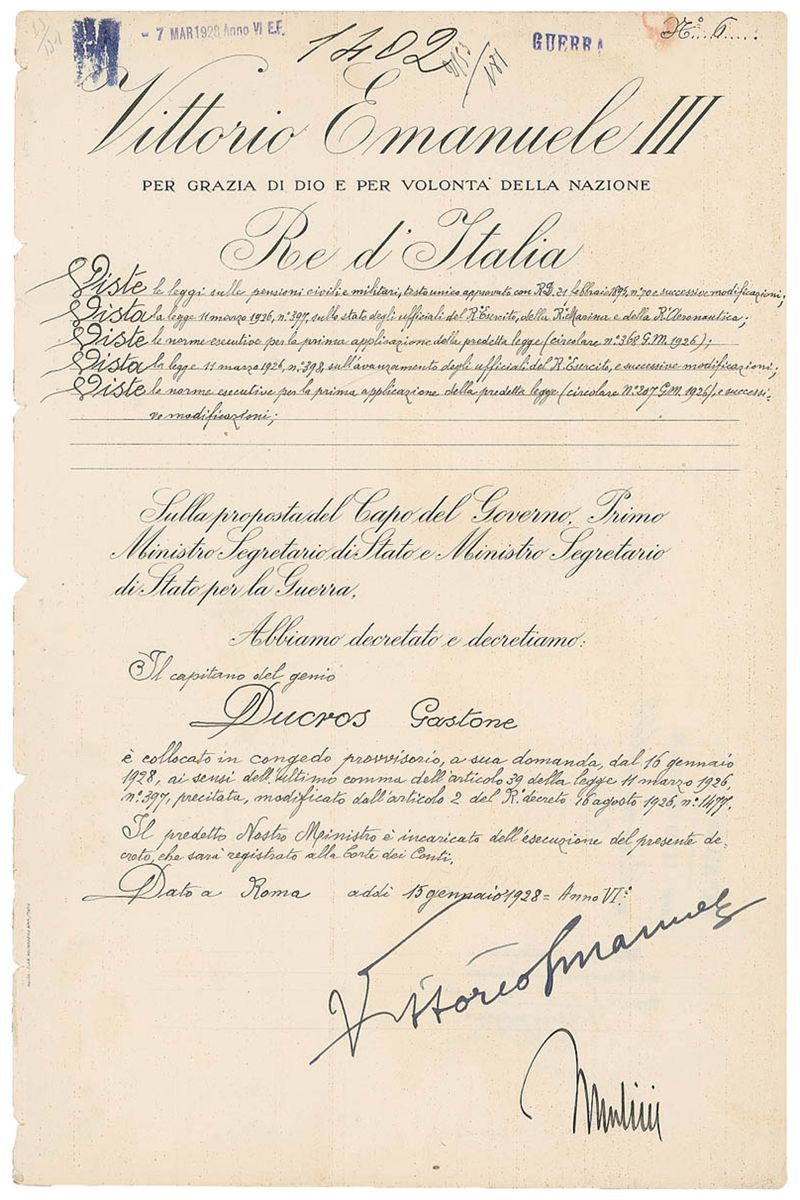 - 7 MAR 1928 Anno VI E.F.
1402
GUERRA
N° 6
Vittorio Emanuele III
PER GRAZIA DI DIO E PER VOLONTA' DELLA NAZIONE
Re d'Italia
Viste le leggi sulle pensioni civili e militari, testo unico approvato con R.D. 21 febbraio 1895, n. 70 e successive modificazioni;
Vista la legge 11 marzo 1926, n° 397, sullo stato degli ufficiali del R° Esercito, della Ra Marina e della Ra Aeronautica;
Viste le norme esecutive per la prima applicazione della predetta legge (circolare n° 368 G.M. 1926);
Vista la legge 11 marzo 1926, n° 398, sull'avanzamento degli ufficiali del R. Esercito, e successive modificazioni;
Viste le norme esecutive per la prima applicazione della predetta legge (circolare N° 207 G.M. 1926), e successi-
ve modificazioni;
Sulla proposta del Capo del Governo, Primo
Ministro Segretario di Stato e Ministro Segretario
di Stato per la Guerra,
Abbiamo decretato e decretiamo:
Il capitano del genio
Ducros Gastone
è collocato in congedo provvisorio, a sua domanda, dal 16 gennaio
1928, ai sensi dell'ultimo comma dell'articolo 39 della legge 11 marzo 1926,
n° 397, precitata, modificato dall'articolo 2 del R° decreto 16 agosto 1926, n° 1477.
Il predetto Nostro Ministro è incaricato dell'esecuzione del presente de-
creto, che sarà registrato alla Corte dei Conti.
Dato a Roma addì 15 gennaio 1928 = Anno VI°
Vittorio Emanuele
Mussolini